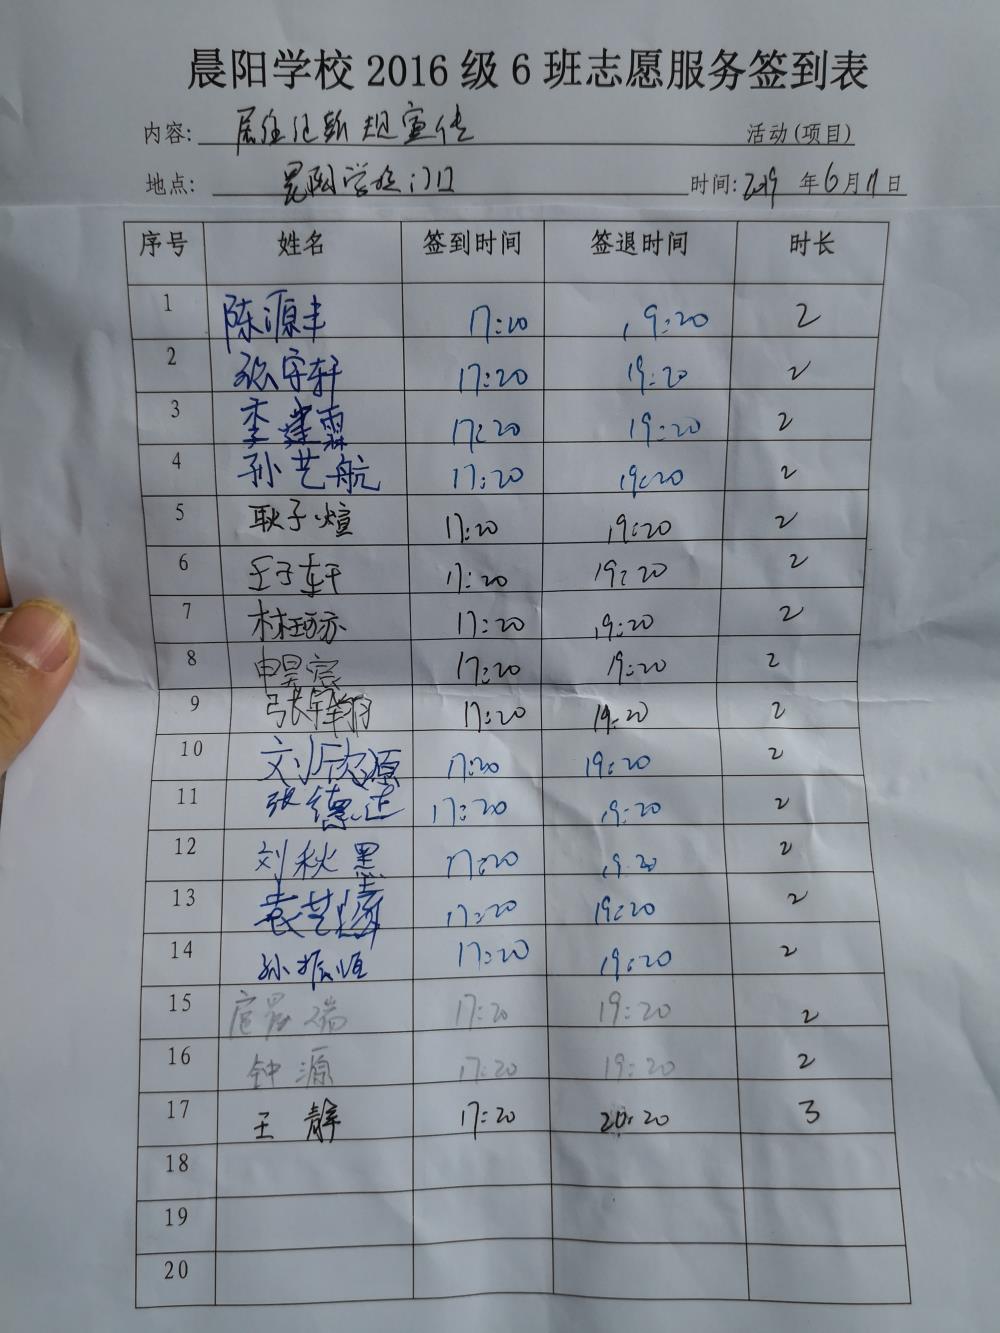 晨阳学校 2016 级 6 班志愿服务签到表
内容: 居住证新规宣传 活动(项目)
地点: 晨阳学校门口 时间: 2019 年 6 月 11 日
序号 姓名 签到时间 签退时间 时长
1 陈源丰 17:20 19:20 2
2 张宇轩 17:20 19:20 2
3 李霖 17:20 19:20 2
4 孙艺航 17:20 19:20 2
5 耿子煊 17:20 19:20 2
6 王子轩 17:20 19:20 2
7 17:20 19:20 2
8 申昊宸 17:20 19:20 2
9 张翔 17:20 19:20 2
10 刘欣源 17:20 19:20 2
11 张德正 17:20 19:20 2
12 刘秋墨 17:20 19:20 2
13 袁艺 17:20 19:20 2
14 孙振恒 17:20 19:20 2
15 扈晨瑞 17:20 19:20 2
16 钟源 17:20 19:20 2
17 王静 17:20 20:20 3
18
19
20